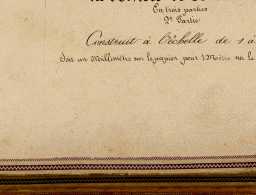 En trois parties
2e Partie
Construit à l'échelle de 1 à
Soit un millimètre sur le papier pour 1 Mètre